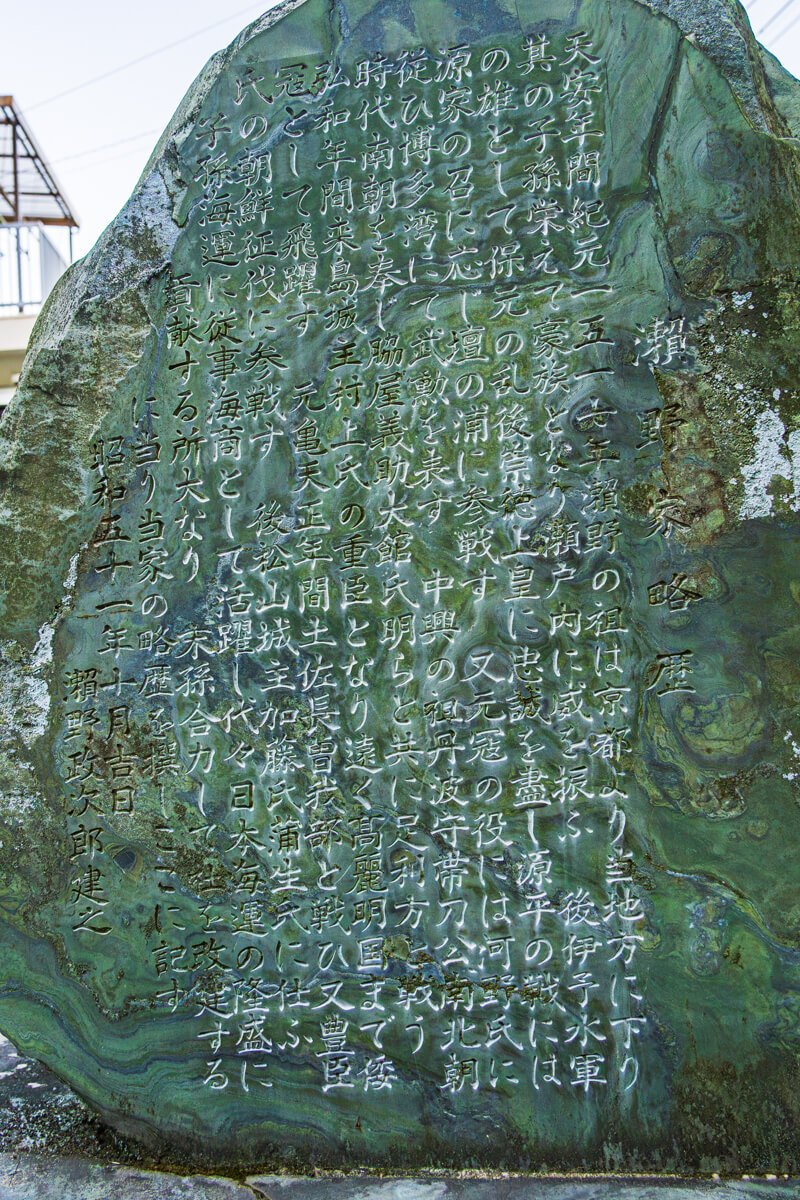 瀨野家略歴
天安年間紀元一五一七年瀨野の祖は京都より当地方に下り
其の子孫栄えて豪族となり瀬戸内に威を振ふ 後伊予水軍
の雄として保元の乱後崇徳上皇に忠誠を盡し源平の戦には
源家の召に応じ壇の浦に参戦す 又元冦の役には河野氏に
従ひ博多湾にて武勳を表す 中興の祖丹波守帯刀公南北朝
時代南朝を奉し脇屋義助大館氏明らと共に足利方と戦う
弘和年間来島城主村上氏の重臣となり遠く髙麗明国まで倭
冦として飛躍す 元亀天正年間土佐長曽我部と戦ひ又豊臣
氏の朝鮮征伐に参戦す 後松山城主加藤氏蒲生氏に仕ふ
子孫海運に従事海商として活躍し代々日本海運の隆盛に
貢献する所大なり 末孫合力して 社を改建する
に当り当家の略歴を撰しここに記す
昭和五十一年十月吉日
瀨野政次郎建之